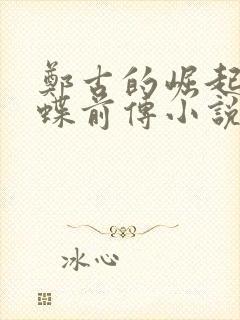 鄭古的崛起
蝶前傳小說
冰心